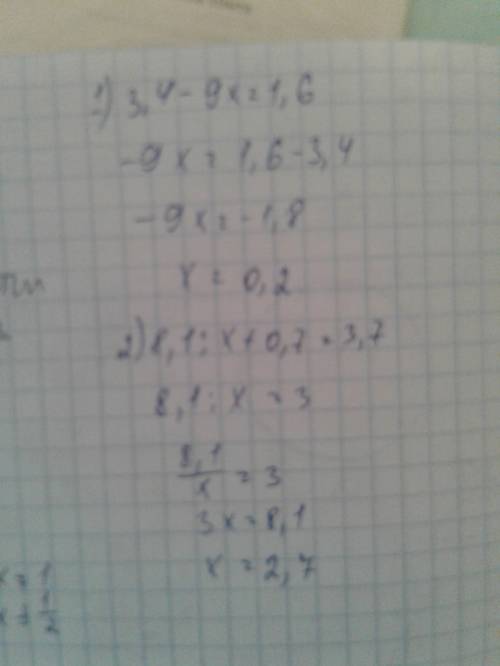 1) 3,4 - 9x = 1,6
-9x = 1,6 - 3,4
-9x = -1,8
x = 0,2
2) 8,1 : x + 0,7 = 3,7
8,1 : x = 3
8,1/x = 3
3x = 8,1
x = 2,7
x = 1
x = 1/2